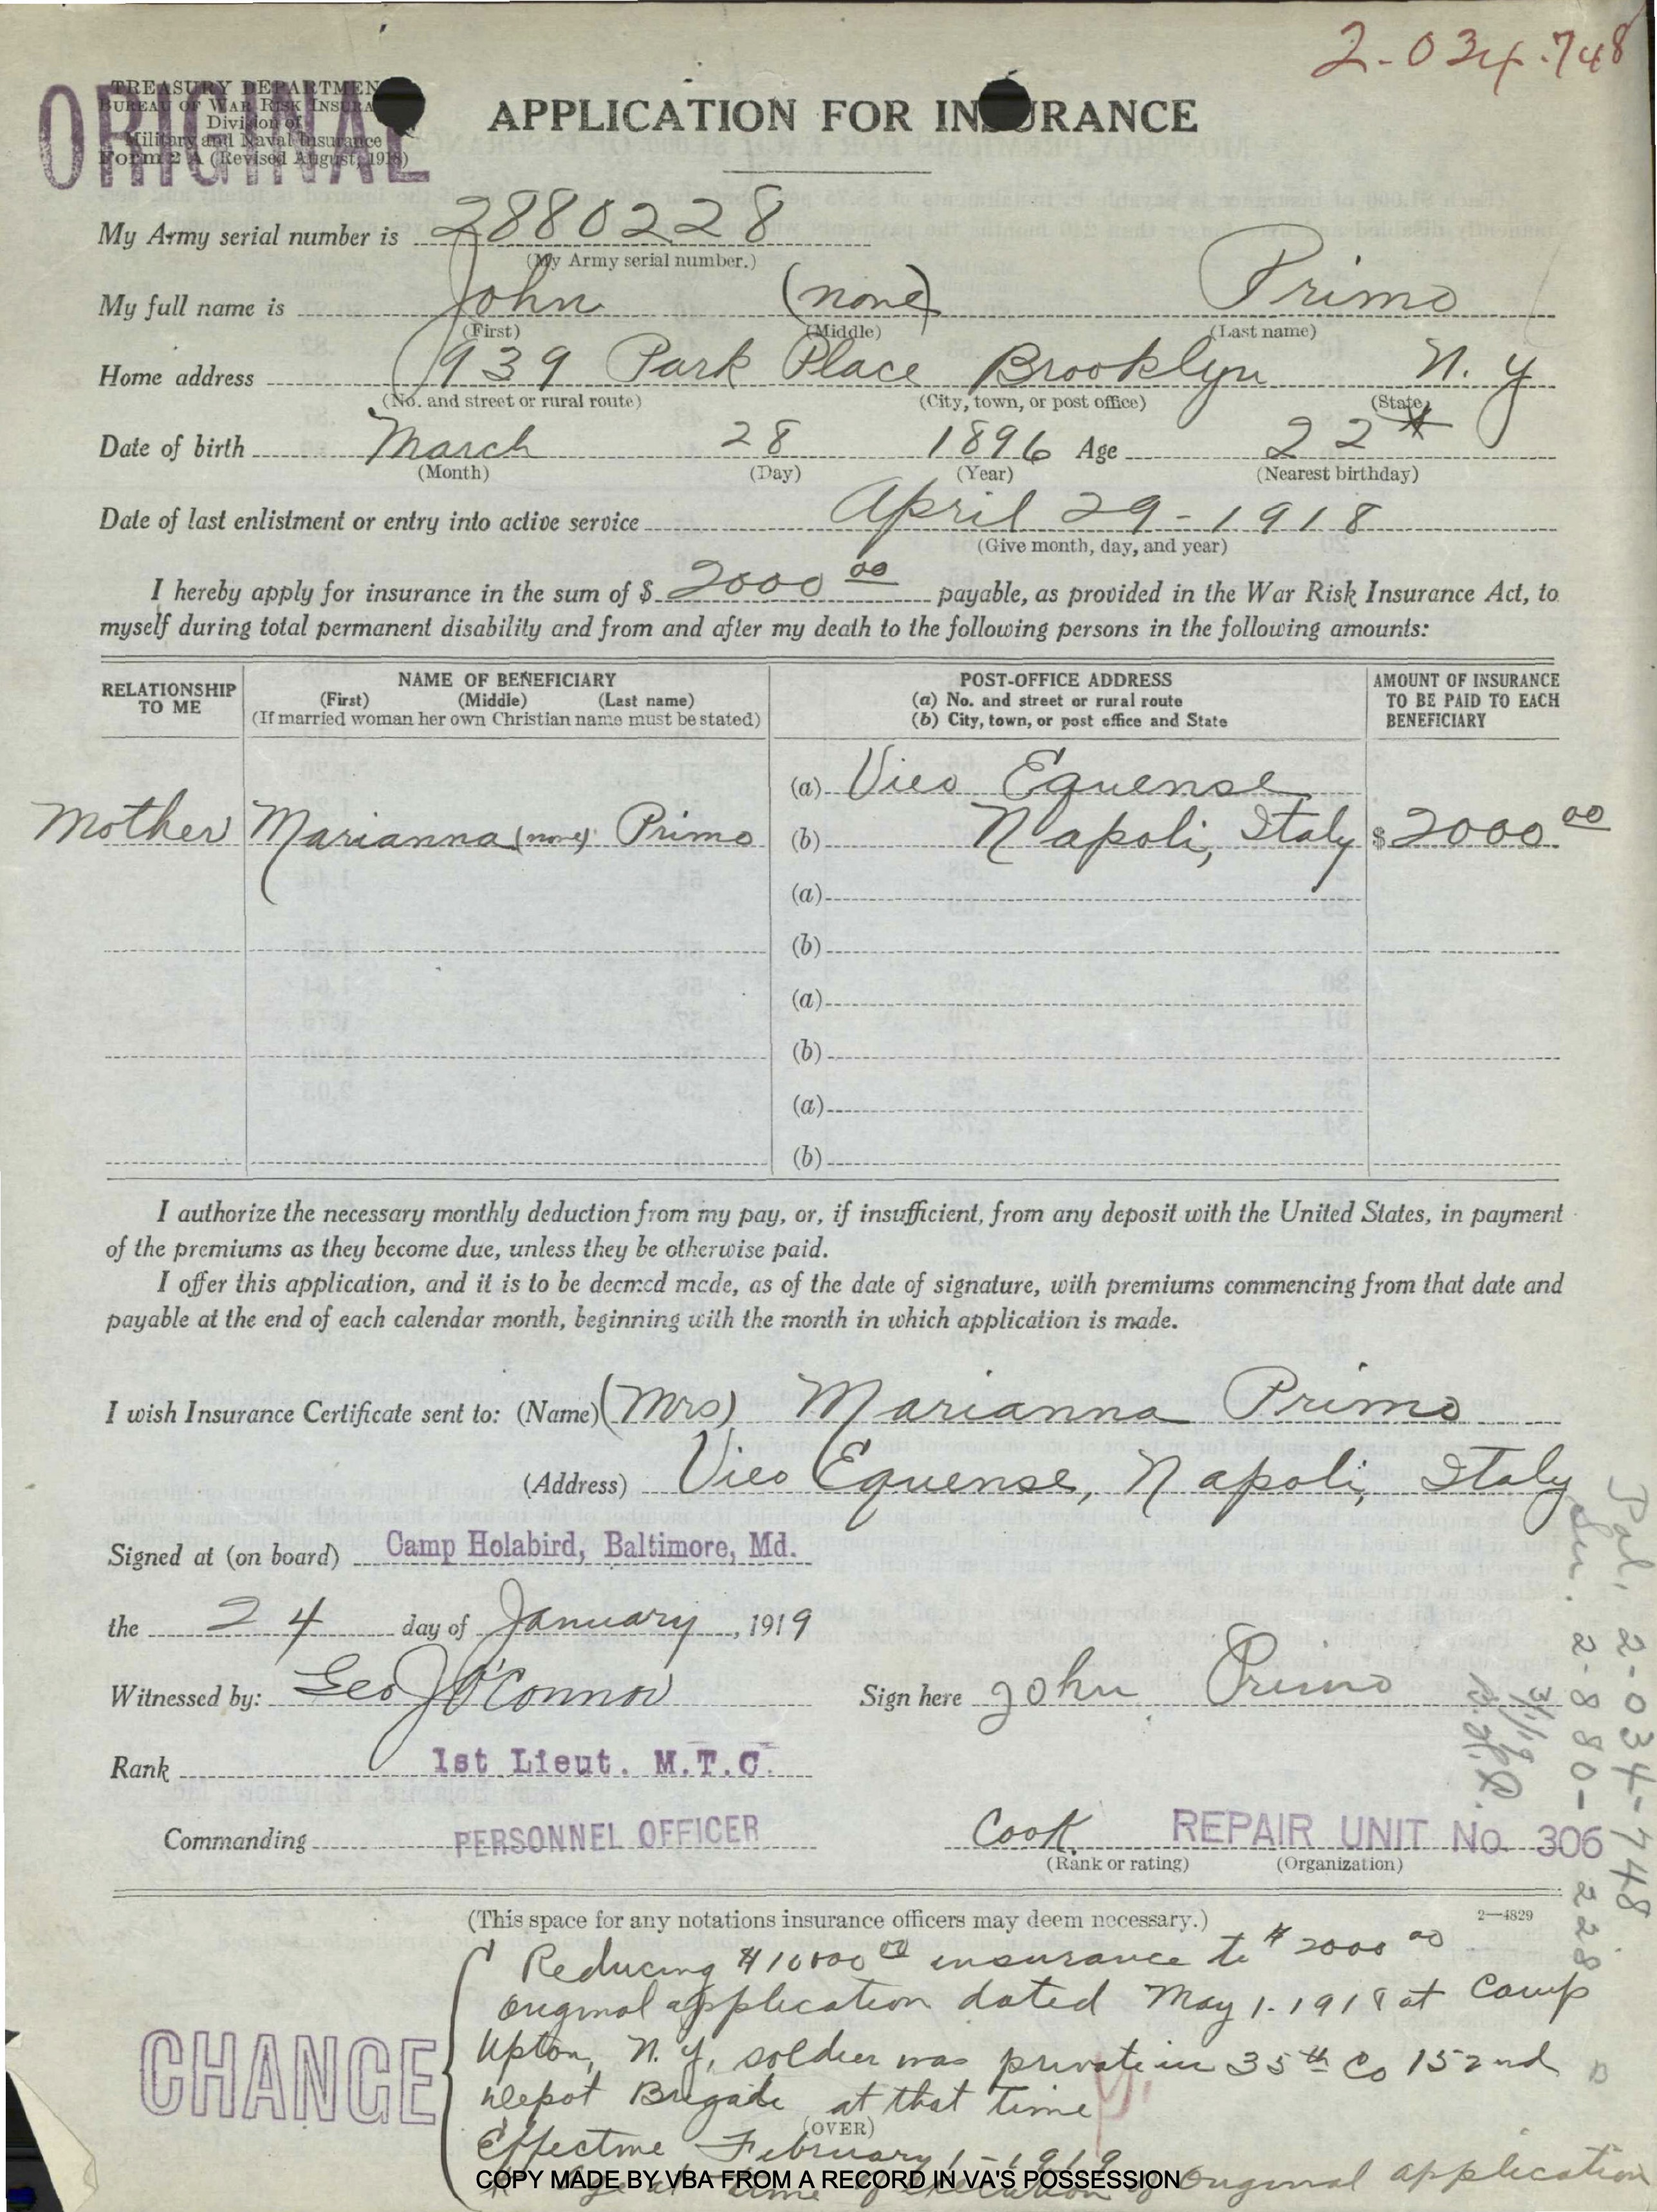 2-034-748
ORIGINAL
TREASURY DEPARTMEN
BUREAU OF WAR RISK INSURA
Division of
Military and Naval Insurance
Form 2 A (Revised August, 1918)
APPLICATION FOR INSURANCE
My Army serial number is 2880228
(My Army serial number.)
My full name is John (none) Primo
(First) (Middle) (Last name)
Home address 939 Park Place Brooklyn N. Y
(No. and street or rural route) (City, town, or post office) (State)
Date of birth March 28 1896 Age 22 *
(Month) (Day) (Year) (Nearest birthday)
Date of last enlistment or entry into active service April 29-1918
(Give month, day, and year)
I hereby apply for insurance in the sum of $ 2000 00 payable, as provided in the War Risk Insurance Act, to
myself during total permanent disability and from and after my death to the following persons in the following amounts:
RELATIONSHIP TO ME
NAME OF BENEFICIARY
(First) (Middle) (Last name)
(If married woman her own Christian name must be stated)
POST-OFFICE ADDRESS
(a) No. and street or rural route
(b) City, town, or post office and State
AMOUNT OF INSURANCE
TO BE PAID TO EACH
BENEFICIARY
(a) Vico Equense
Mother Marianna (none) Primo (b) Napoli, Italy $ 2000 00
(a)
(b)
(a)
(b)
(a)
(b)
I authorize the necessary monthly deduction from my pay, or, if insufficient, from any deposit with the United States, in payment
of the premiums as they become due, unless they be otherwise paid.
I offer this application, and it is to be deemed made, as of the date of signature, with premiums commencing from that date and
payable at the end of each calendar month, beginning with the month in which application is made.
I wish Insurance Certificate sent to: (Name) (Mrs) Marianna Primo
(Address) Vico Equense, Napoli, Italy
Signed at (on board) Camp Holabird, Baltimore, Md.
the 24 day of January, 1919
Witnessed by: Geo J O'Connor Sign here John Primo
Rank 1st Lieut. M.T.C.
Commanding PERSONNEL OFFICER Cook REPAIR UNIT No. 306
(Rank or rating) (Organization)
Pal. 2-034-748
Ser. 2-880-228
(This space for any notations insurance officers may deem necessary.) 2—4829
Reducing $10000 00 insurance to $2000 00
original application dated May 1-1918 at Camp
Upton, N. Y, soldier was private in 35th Co 152nd
Depot Brigade at that time
CHANGE
(OVER)
Effective February 1-1919
* Age at time of execution of original application
COPY MADE BY VBA FROM A RECORD IN VA'S POSSESSION